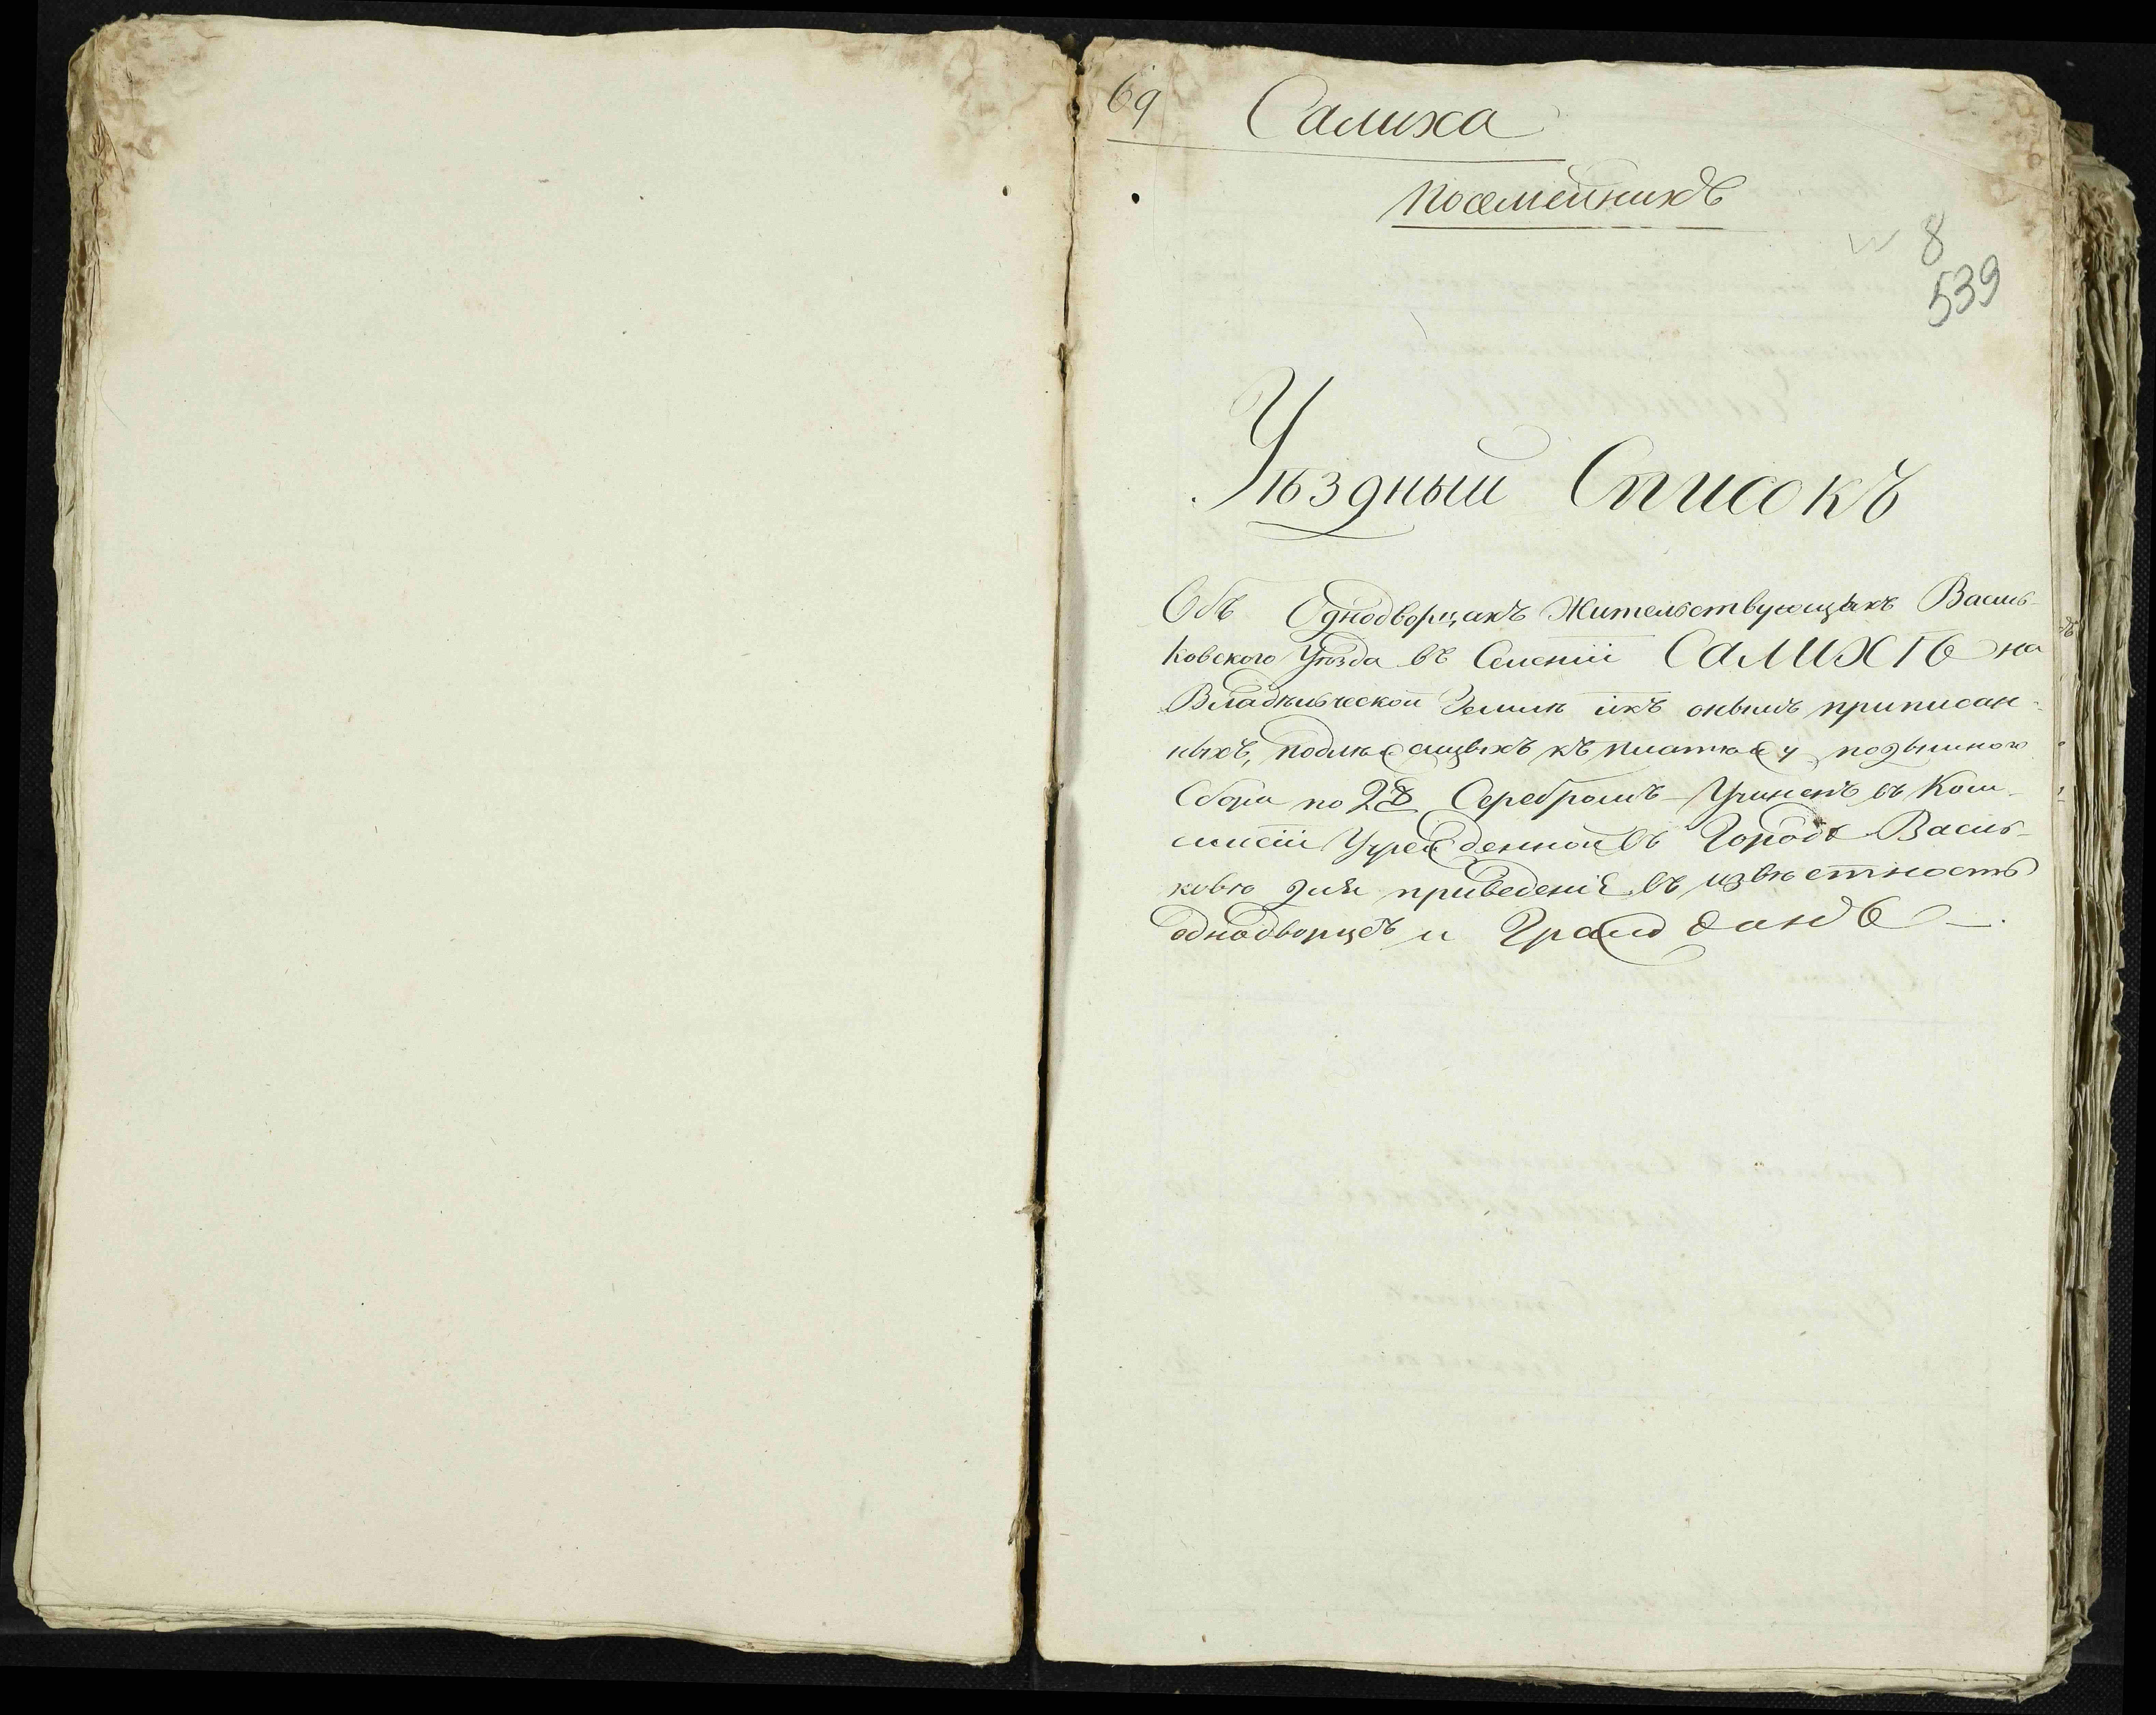 69 Салиха
Посемейникъ
8
539
Уѣздный Списокъ
Объ Однодворцахъ Жительствующихъ Василь-
ковского Уѣзда въ Селеніи САЛИХѣ на
Владѣльческой Земли икъ онымъ приписан-
ныхъ, подлежащихъ къ платежу подымного
Сбора по 2 Серебромъ Учиненъ въ Ком-
мисіи Учрежденной въ Городѣ Василь-
ковѣ для приведеніе въ извѣстность
однодворцевъ и Гражданъ